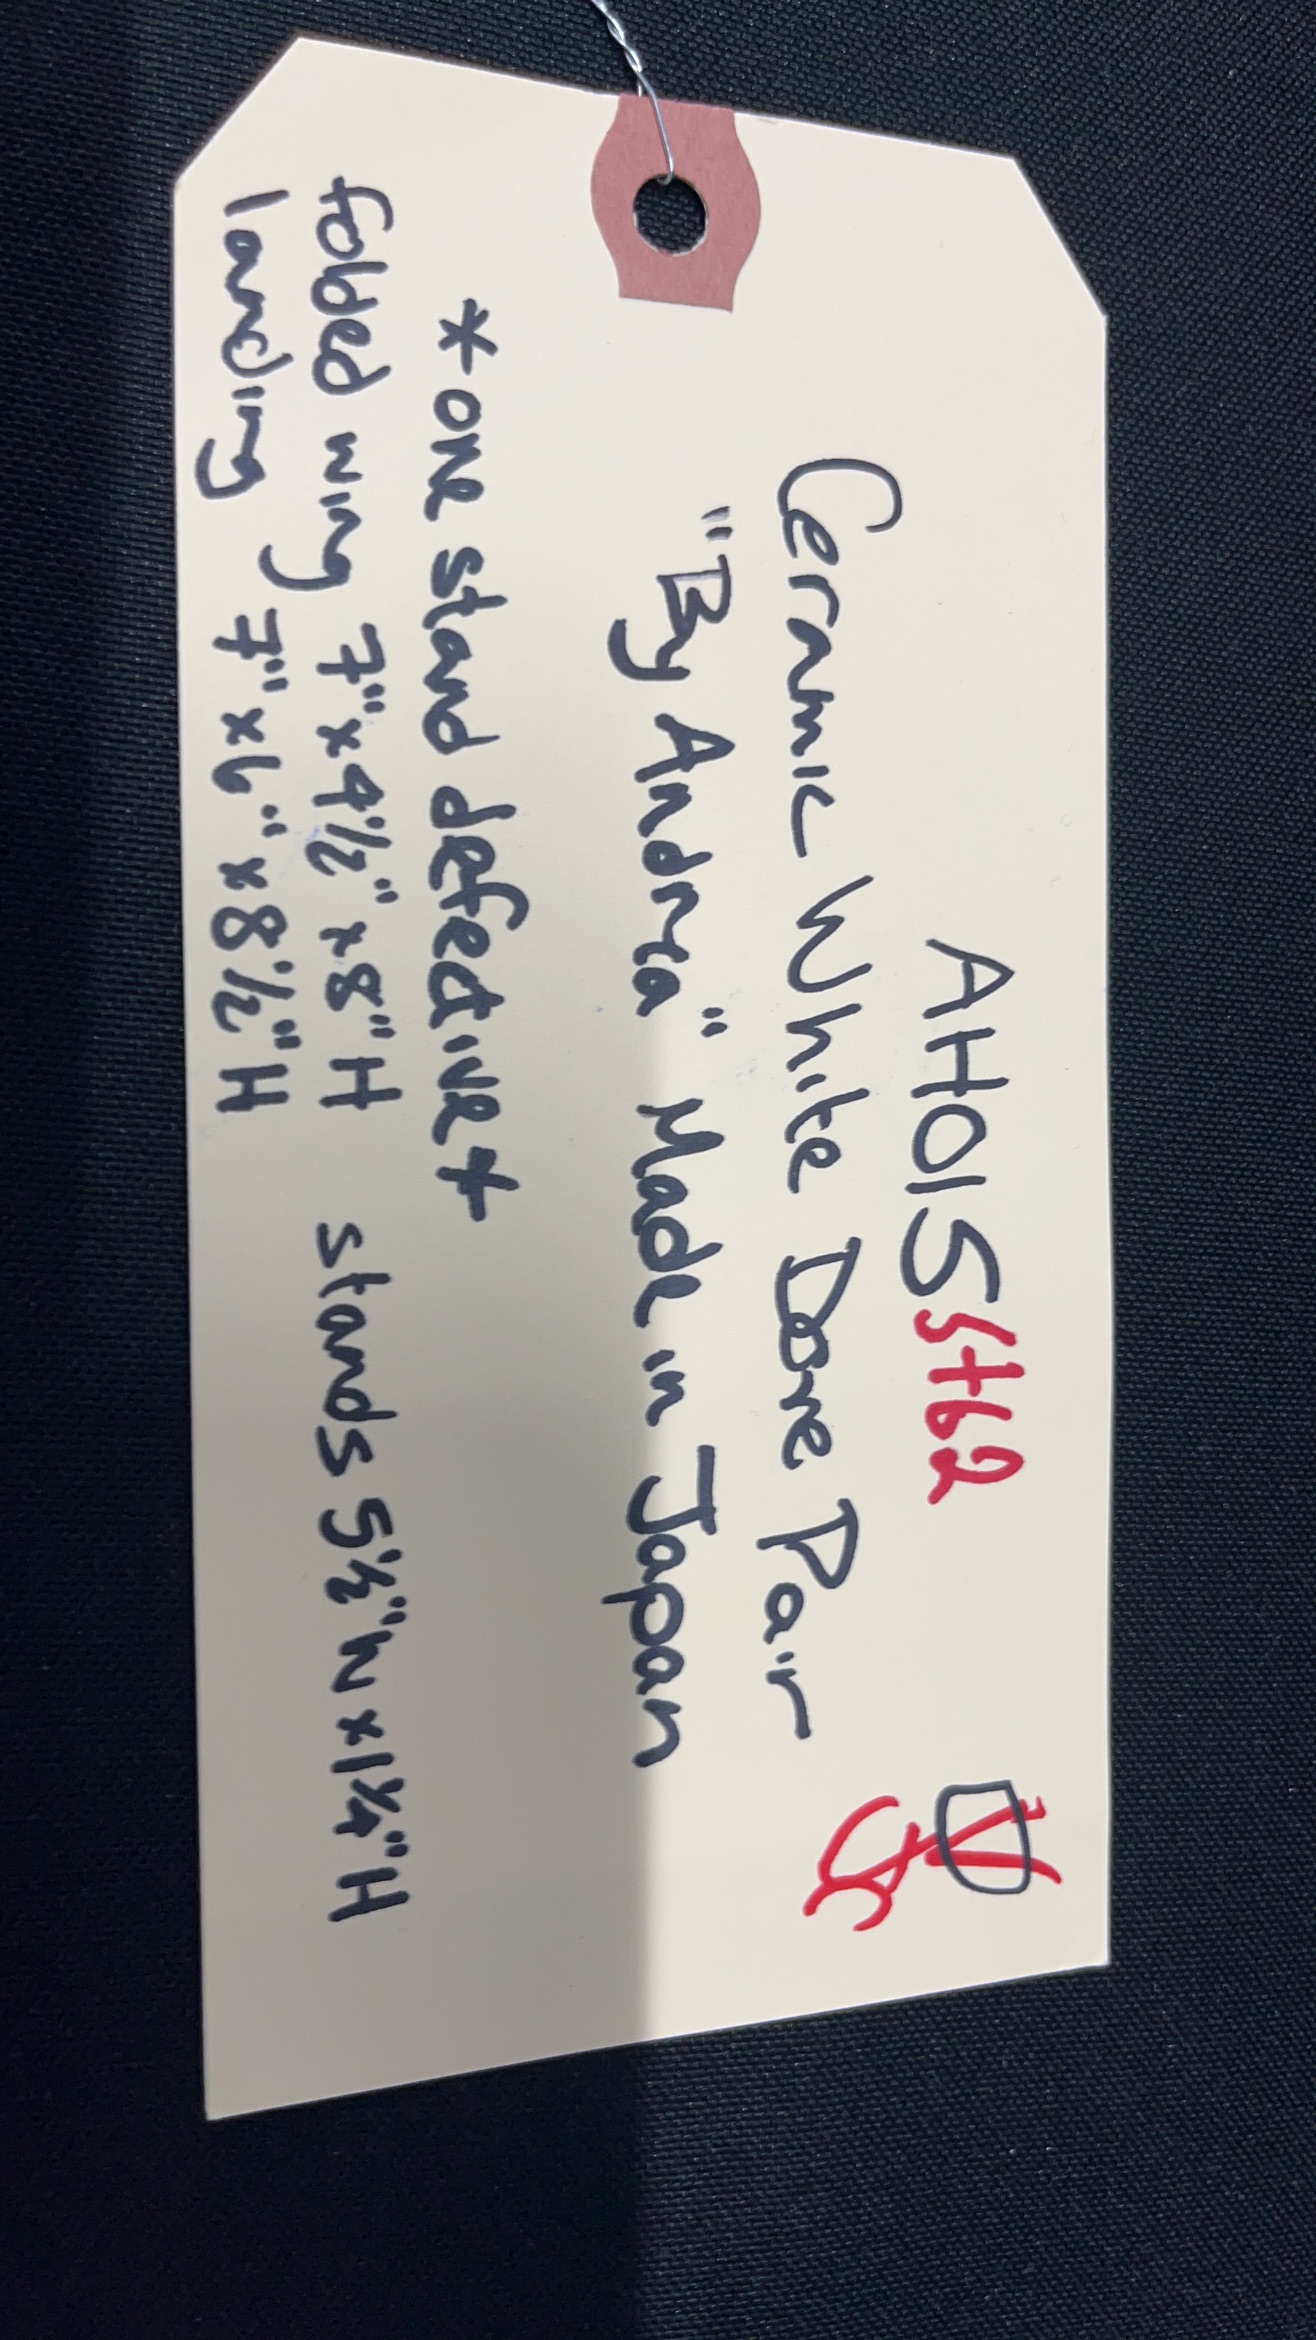 AHO1S5462
Ceramic White Dove Pair
"By Andrea" Made in Japan
*one stand defective*
folded wing 7"x4½"x8"H stands 5½"W x1¼"H
landing 7"x6"x8½"H